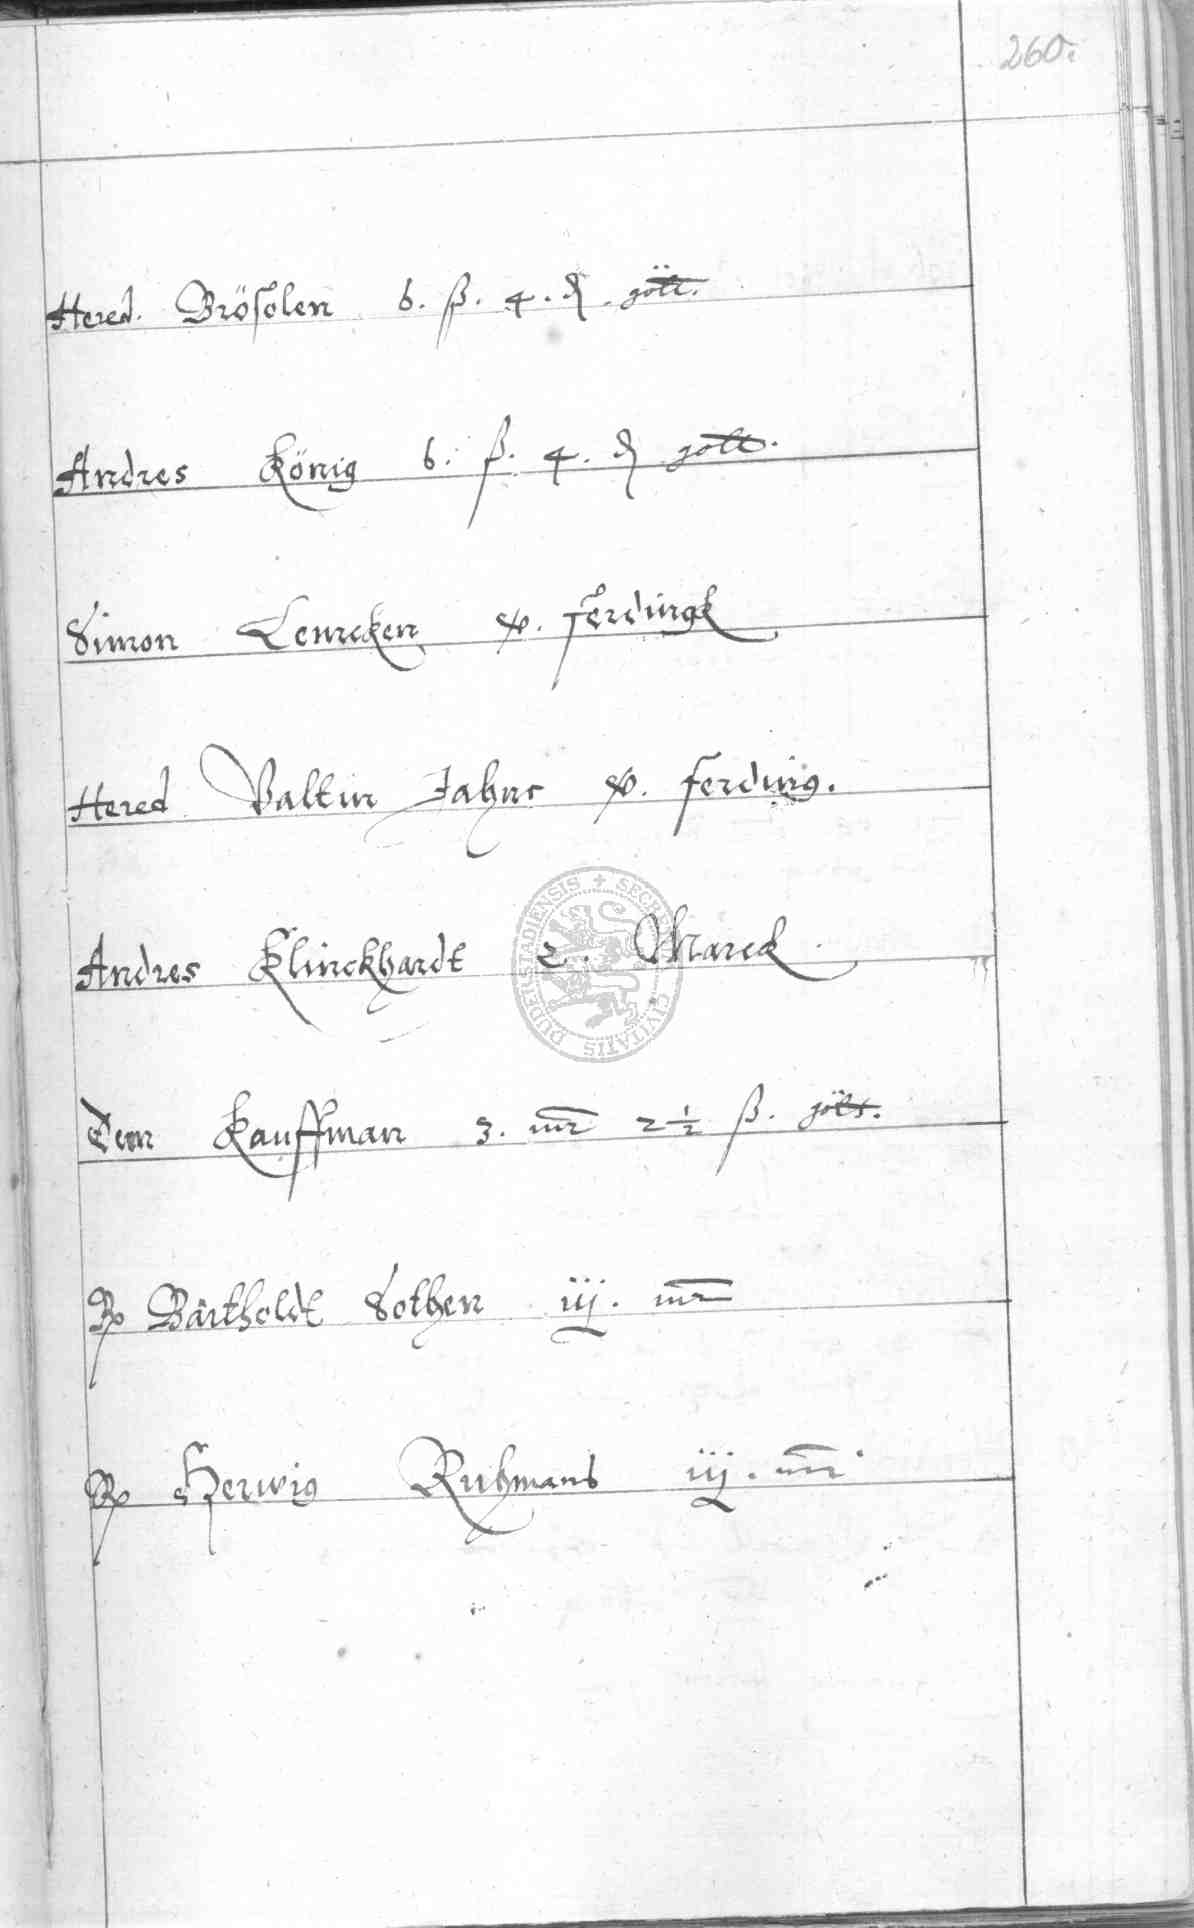 260.
Hered. Brösolen 6. ß. 4. ₰. gött.
Andres König 6. ß. 4. ₰ gött.
Simon Lenrcken ferdingk
Hered Valtin Jahns ferding.
Andres Klinckhardt 2. Marck
Dem Kauffman 3. mr 2 1/2 ß. gött.
Bartholdt Sothen iij. mr
Herwig Ruhmans iij. mr
SECRE CIVITATIS DUDERSTADIENSIS